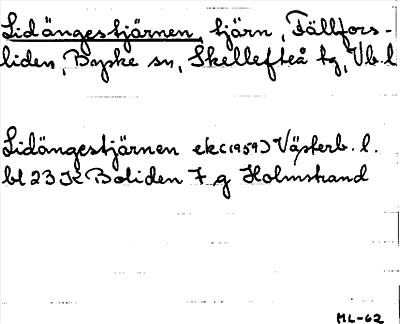 Lidängestjärnen, tjärn, Fällfors-
liden, Byske sn, Skellefteå tg, Vb. l
Lidängestjärnen ek (1959) Västerb. l.
bl 23 K Boliden 7 g Holmstrand
ML-62